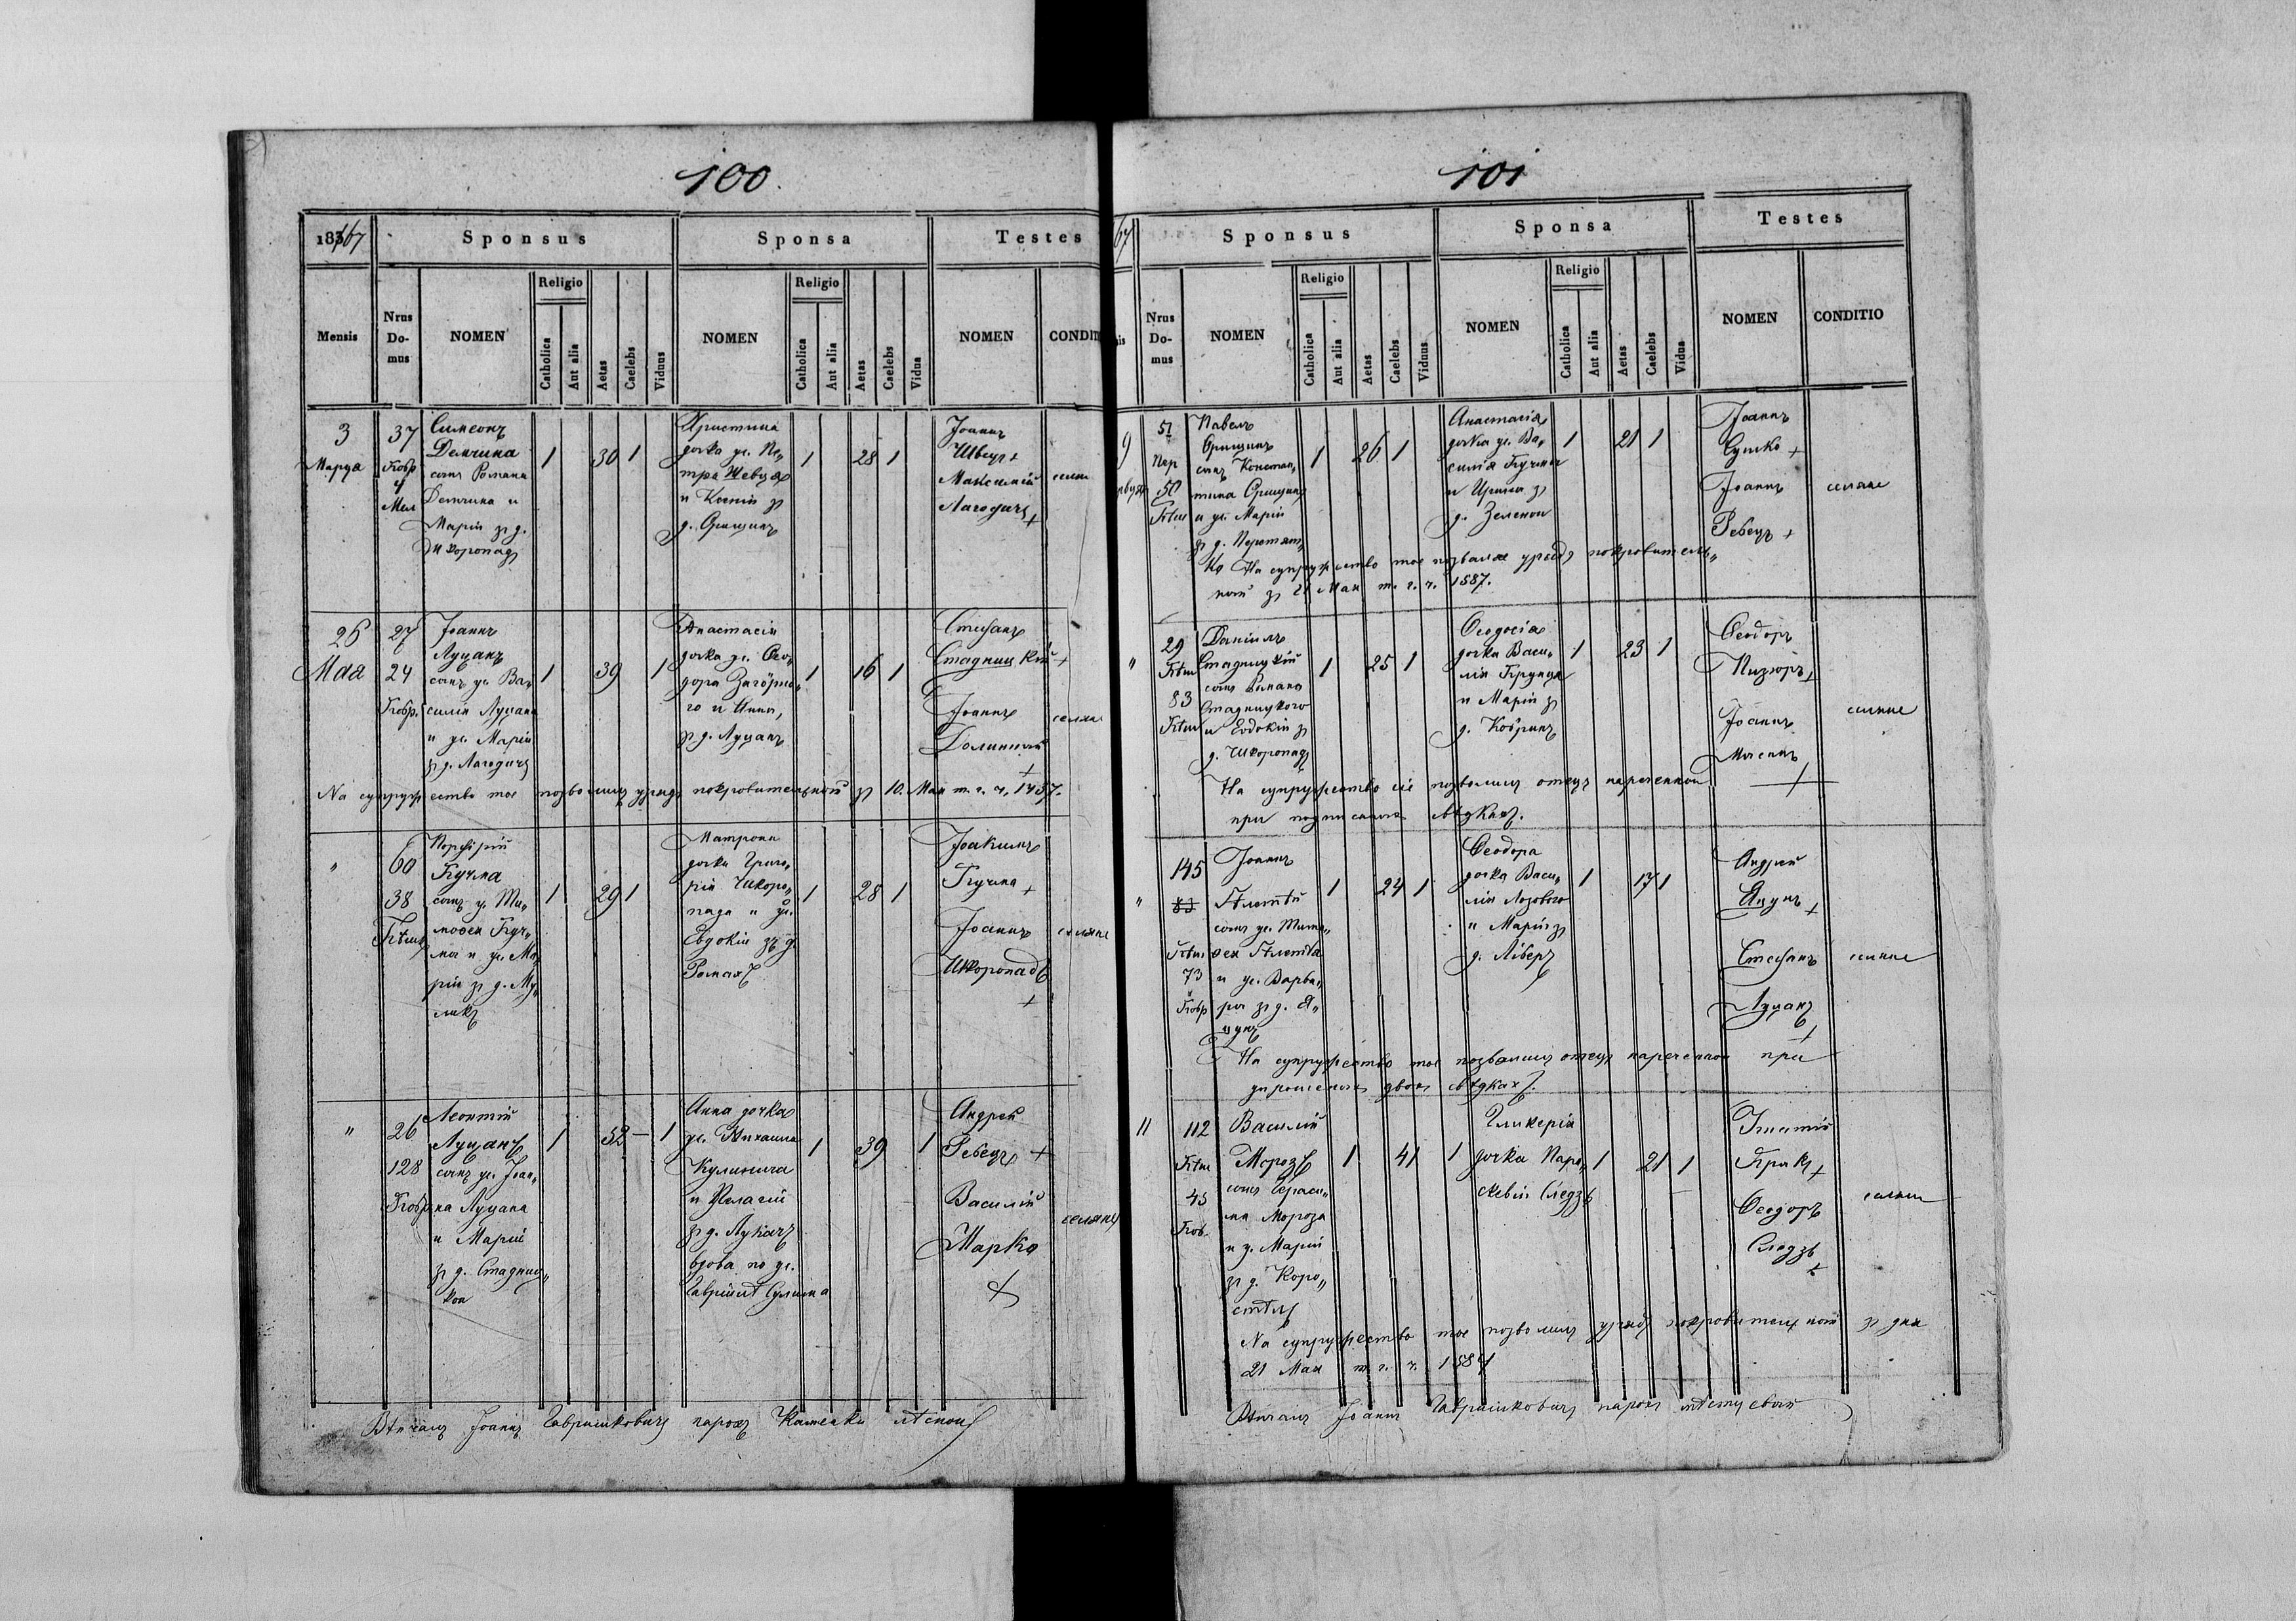 100
1867 Sponsus Sponsa Testes
Mensis Nrus Domus NOMEN Religio Catholica Aut alia Aetas Caelebs Viduus NOMEN Religio Catholica Aut alia Aetas Caelebs Vidua NOMEN CONDIT
3
Марца
37
Кобр
и
Мел
Симеонъ
Демчина
сынъ Романа
Демчина и
Маріи зъ д.
Шкоропадъ
1 30 1
Христина
дочка ул. Пе„
тра Шевца
и Ксеніи зъ
д. Орищинъ
1 28 1
Іоаннъ
Швецъ +
Максимій
Лагодичъ +
селяне
26
Мая
27
24
Кобр.
Іоаннъ
Луцанъ
сынъ ул. Ва„
силія Луцана
и ул. Маріи
зъ д. Лагодичъ
1 39 1
Анастасія
дочка ул. Ѳео„
дора Загорно„
го и Анны,
зъ д. Луцанъ
1 16 1
Стефанъ
Стадницкій +
Іоаннъ
Долинный
+
селяне
На супружество тое позволилъ урядъ покровительный зъ 10. Мая т. г. ч. 1437.
"
60
38
Кѣтш
Порфирій
Кучма
сынъ у. Ти„
моѳея Куч„
мы и ул. Ма„
ріи зъ д. Му„
ликъ
1 29 1
Матрона
дочка Григо„
рія Шкоро„
пада и ул.
Евдокіи зъ д.
Романъ
1 28 1
Іоакимъ
Кучма +
Іоаннъ
Шкоропадъ
+
селяне
"
26
128
Кобр
Леонтій
Луцанъ
сынъ ул. Іоан„
на Луцана
и Маріи
зъ д. Стадниц„
кои
1 52 — 1
Анна дочка
ул. Михаила
Кулинича
и Пелагіи
зъ д. Лукачъ
вдова по ул.
Гавріилѣ Сулима
1 39 1
Андрей
Ребецъ +
Василій
Марко
+
селяне
Вѣнчалъ Іоаннъ Гавришковичъ парохъ Каменки лѣснои
101
67 Sponsus Sponsa Testes
Nrus Domus NOMEN Religio Catholica Aut alia Aetas Caelebs Viduus NOMEN Religio Catholica Aut alia Aetas Caelebs Vidua NOMEN CONDITIO
9
51
Пер
50
Кѣтш
Павелъ
Орищинъ
сынъ Констан„
тина Орищина
и ул. Маріи
зъ д. Перетят„
ко
1 26 1
Анастасія
дочка ул. Ва„
силія Кучмы
и Ирины зъ
д. Зеленои
1 21 1
Іоаннъ
Сушко +
Іоаннъ
Ребецъ +
селяне
На супружество тое позваляе урядъ покровитель„
ный зъ 21 Мая т. г. ч. 1587.
"
29
Кѣтш
83
Кѣтш
Даніилъ
Стадницкій
сынъ Романа
Стадницкого
и Евдокіи зъ
д. Шкоропадъ
1 25 1
Ѳеодосія
дочка Васи„
лія Крупца
и Маріи зъ
д. Кобринъ
1 23 1
Ѳеодоръ
Пизюръ +
Іоаннъ
Мисникъ
+
селяне
На супружество сіе позволилъ отецъ нареченнои
при подписаныхъ свѣдкахъ.
"
145
83
Кѣтш
73
Кобр
Іоаннъ
сынъ ул. Тимо„
и ул. Варва„
ры зъ д. Я„
цунъ
1 24 1
Ѳеодора
дочка Васи„
лія Лозового
и Маріи зъ
д. Лѣберъ
1 17 1
Андрей
Яцунъ +
Стефанъ
Луцанъ
+
селяне
На супружество тое позволилъ отецъ нареченнои при
упрошеныхъ двохъ свѣдкахъ.
"
112
Кѣтш
45
Коб.
Василій
Морозъ
сынъ Гераси„
ма Мороза
и у. Маріи
зъ д. Коро„
стѣль
1 41 1
Гликерія
дочка Пара„
скевіи Следзь
1 21 1
Игнатій
Крикъ +
Ѳеодоръ
Следзь
+
селяне
На супружество тое позволилъ урядъ покровительный зъ дня
21 Мая т. г. ч. 1584
Вѣнчалъ Іоаннъ Гавришковичъ парохъ мѣстцевый